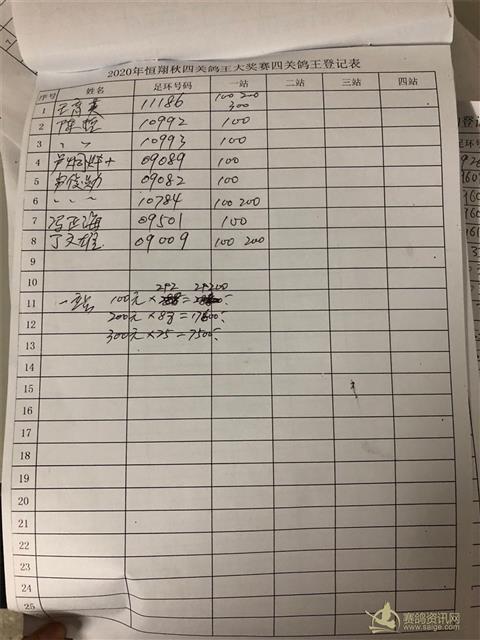 2020年恒翔秋四关鸽王大奖赛四关鸽王登记表
序号 姓名 足环号码 一站 二站 三站 四站
1 11186 100 200 300
2 10992 100
3 〃 〃 10993 100
4 09089 100
5 09082 100
6 〃 〃 10784 100 200
7 冯正海 09501 100
8 丁文雄 09009 100 200
9
10
292 29200
11 一站 100元×=
12 200元×88=17600
13 300元×25=7500
14
15
16
17
18
19
20
21
22
23
24
25
登记
足环号
赛鸽资讯网
www.saige.com